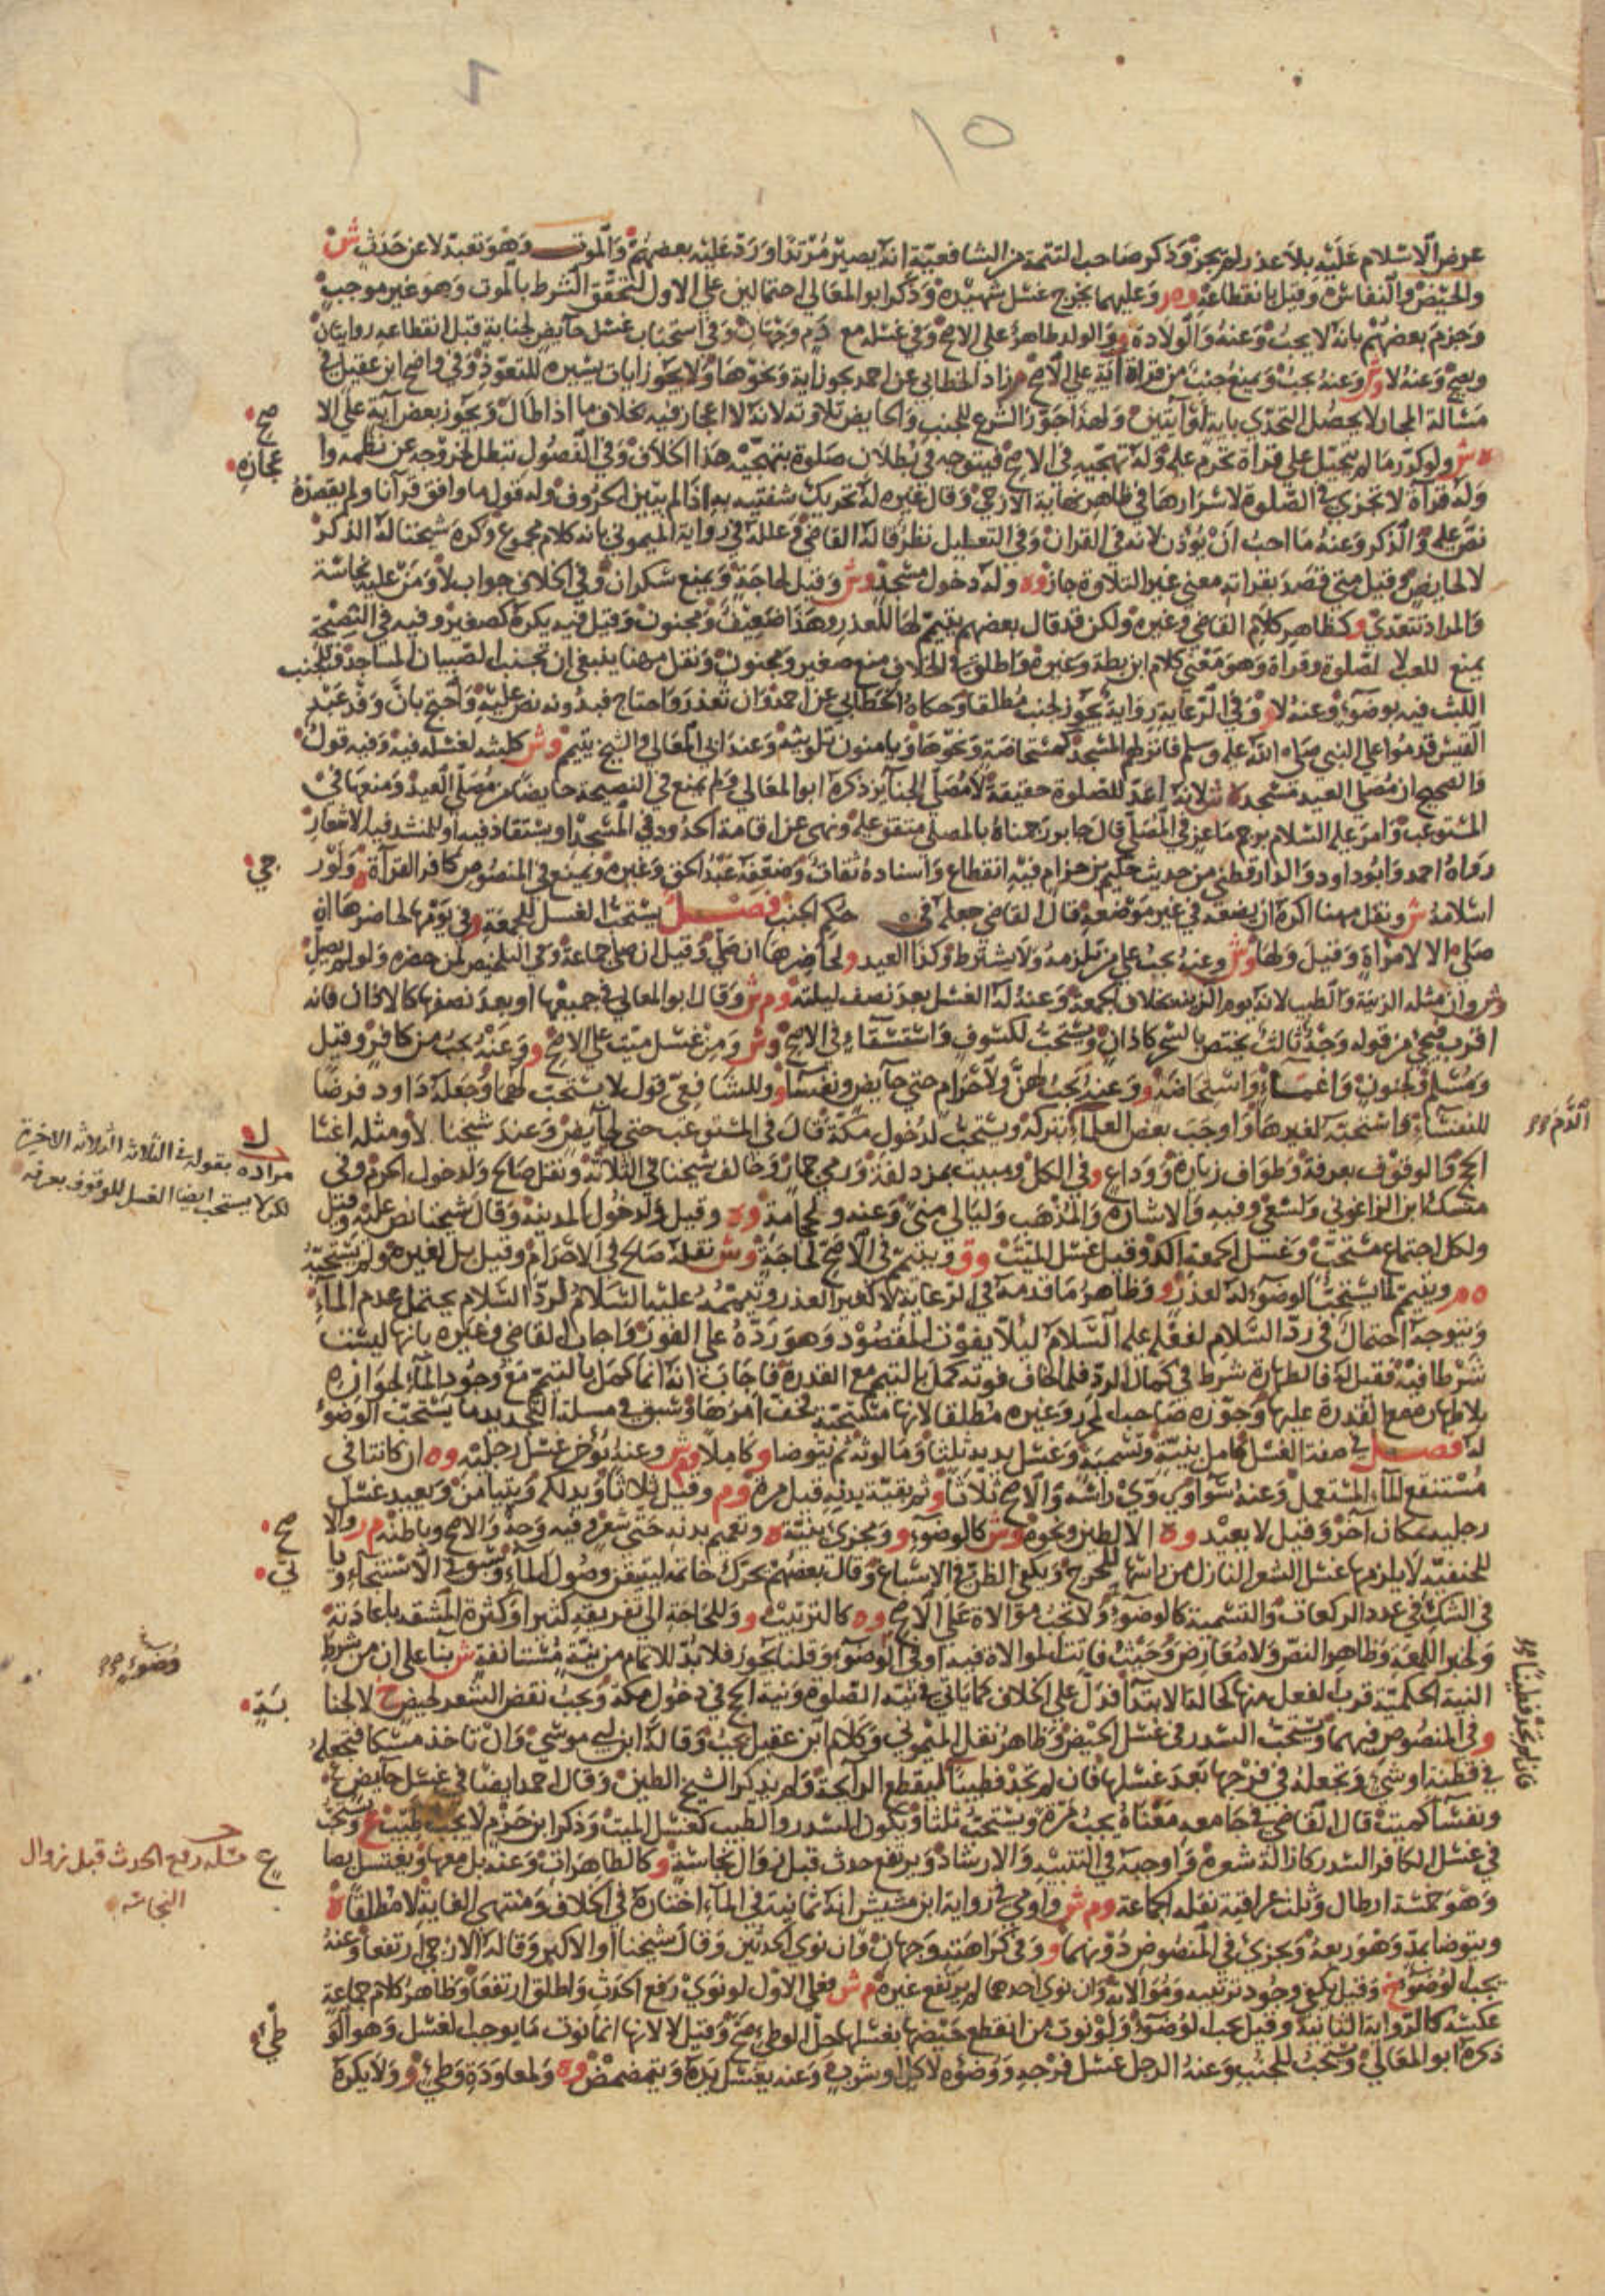 ١٥
عرض الاسلام عليه بلا عذر لم يجز وذكر صاحب التتمة من الشافعية انه يصير مرتدا ورد عليه بعضهم والموت وهو تعبد لا عن حدث ش
والحيض والنفاس ه وقيل بانقطاعه وم ر وعليهما يخرج غسل شهيدة وذكر ابو المعالي احتمالين على الاول لتحقق الشرط بالموت وهو غير موجب
وجزم بعضهم بانه لا يجب وعنه والولادة و والولد طاهر على الاصح وفي غسله مع دم وجهان وفي استحباب غسل حايض لجنابة قبل انقطاعه روايتان
ويصح وعنه لا وش وعنه يجب ويمنع جنب من قراة اية على الاصح م زاد الخطابي عن احمد يجوز اية ونحوها ولا يجوز ايات يسيره للتعوذ وفي واضح ابن عقيل في
مسالة الاعجاز لا يحصل التحدي باية او آيتين ولهذا جوز الشرع للجنب والحايض تلاوته لانه لا اعجاز فيه بخلاف ما اذا طال ويجوز بعض آية على الا
صح
ه ش ولو كرر ما لم يتحيل على قراة تحرم عليه وله تهجيه في الاصح فيتوجه في بطلان صلوة بتهجيه هذا الخلاف وفي الفصول تبطل لخروجه عن نظمه وا
عجازه
وله قراة لا تجزي في الصلوة لاسرارها في ظاهر نهاية الازجي وقال غيره له تحريك شفتيه به اذا لم يبين الحروف وله قول ما وافق قرآنا ولم يقصده
نص عليه و والذكر وعنه ما احب ان يؤذن لانه في القران وفي التعليل نظر قاله القاضي وعلله في رواية الميموني بانه كلام مجموع وكره شيخنا له الذكر
لا لحايض وقيل متى قصد بقراته معنى غير التلاوة جاز وه وله دخول مسجد وش وقيل لحاجة ويمنع سكران وفي الخلاف جواب لا ومن عليه نجاسة
والمراد تتعدى و كظاهر كلام القاضي وغيره ولكن قد قال بعضهم يتيمم لها للعذر وهذا ضعيف ومجنون وقيل فيه يكره كصغير وفيه في النصيحة
يمنع للعب لا لصلوة وقراة وهو معنى كلام ابن بطة وغيره واطلق في الخلاف منع صغير ومجنون ونقل مهنا ينبغي ان تجنب الصبيان المساجد وللجنب
اللبث فيه بوضوء وعنه لا و وفي الرعاية رواية يجوز لجنب مطلقا وحكاه الخطابي عن احمد وان تعذر واحتاج فبدونه نص عليه واحتج بان وفد عبد
القيس قدموا على النبي صلى الله عليه وسلم فانزلهم المسجد كمستحاضة ونحوها ويامنون تلويثه وعند ابي المعالي والشيخ يتيمم وش كلبثه لغسله فيه وفيه قول
والصحيح ان مصلى العيد مسجد ه ش لانه اعد للصلوة حقيقة لا مصلى الجنايز ذكره ابو المعالي ولم يمنع في النصيحة حايضا من مصلى العيد ومنعها في
المستوعب وامر عليه السلام برجم ماعز في المصلى قال جابر رجمناه بالمصلى متفق عليه ونهى عن اقامة الحدود في المسجد او يستقاد فيه او ينشد فيه الاشعار
رواه احمد وابو داود والدارقطني من حديث حكيم بن حزام فيه انقطاع واسناده ثقات وضعفه عبد الحق وغيره ويمنع في المنصوص كافر القرآة ه ولو ر
جي
اسلامه ش ونقل مهنا اكره ان يضعه في غير موضعه قال القاضي جعله في حكم الجنب فصل يستحب الغسل للجمعة و في يومها لحاضرها ان
صلى م الا لامراة وقيل ولها وش وعنه يجب على من تلزمه ولا يشترط وكذا العيد و لحاضرها ان صلى وقيل ان صلى جماعة وفي التلخيص لمن حضره ولو لم يصل
وش وان مثله الزينة والطيب لانه يوم الزينة بخلاف الجمعة وعنه له الغسل بعد نصف ليلته وم ش وقال ابو المعالي في جميعها او بعد نصفها كالاذان فانه
اقرب فيجي من قوله وجه ثالث يختص بالسحر كاذان ويستحب لكسوف واستسقاء في الاصح وش ومن غسل ميت على الاصح و وعنه يجب من كافر وقيل
ومسلم ولجنون واغماء واستحاضة و وعنه يجب لهن ولاحرام حتى حايض ونفسا و وللشافعي قول لا يستحب لهما وجعله داود فرضا
للنفساء واستحبه لغيرها واوجب بعض العلماء بتركه ويستحب لدخول مكة قال في المستوعب حتى لحايض وعند شيخنا لا ومثله اغسا
الدم
الحج والوقوف بعرفة وطواف زيارة ووداع و وفي الكل ومبيت بمزدلفة ورمي جمار وخالف شيخنا في الثلاثة ونقل صالح ولدخول الحرم وفي
مراده بقوله في الثلاثة الثلاثة الاخيرة
لكن لا يستحب ايضا الغسل للوقوف بعرفه
منسك ابن الزاغوني ولسعي وفيه والاشارة والمذهب وليالي منى وعنه ولحجامة وه وقيل ولدخول المدينة وقال شيخنا نص عليه وقيل
ولكل اجتماع مستحب وغسل الجمعة اكد وقيل غسل الميت وق ويتيمم في الاصح لحاجة وش نقله صالح في الاحرام وقيل بل لغيره ولم يستحبه
ه م ر ويتيمم لما يستحب الوضوء له لعذر و وظاهر ما قدمه في الرعاية لا لغير العذر وتيممه عليه السلام لرد السلام يحتمل عدم الماء
ويتوجه احتمال في رد السلام لفعله عليه السلام ليلا يفوت المقصود وهو رده على الفور واجاب القاضي وغيره بانها ليست
شرطا فيه فقيل له فالطهارة شرط في كمال الرد فلما خاف فوته كمل بالتيمم مع القدرة فاجاب انه انما كمل بالتيمم مع وجود الماء لجوازه
بلا طهارة مع القدرة عليها وجوزه صاحب المحرر وغيره مطلقا لانها مستحبة فخف امرها وسبق في مسلة التجديد ما يستحب الوضوء
له فصل في صفة الغسل كامل بنية وتسمية وغسل يديه ثلثا وما لوثه ثم يتوضا و كاملا وم ش وعنه يؤخر غسل رجليه وه ان كانتا في
مستنقع الماء المستعمل وعنه سواء ويروي راسه والاصح ثلاثا و ثم بقية بدنه قيل مرة وم وقيل ثلاثا ويدلكه ويتيامن ويعيد غسل
رجليه بمكان آخر وقيل لا يعيد وه الا لطين ونحوه وش كالوضوء و ومجزئ بنية ه وتعميم بدنه حتى شعر وفيه وجه والاصح وباطنه م ر والا
صح
للحنفية لا يلزمها غسل الشعر النازل من راسها للحرج ويكفي الظن في الاسباغ وقال بعضهم يحرك خاتمه ليتيقن وصول الماء وسبق في الاستنجاء ويا
تي
في الشك في عدد الركعات والتسمية كالوضوء ولا تجب موالاة على الاصح وه كالترتيب و وللحاجة الى تفريقه كثيرا وكثرة المشقة باعادته
وضوء
ولخبر اللمعة وظاهر النص ولا معارض وحيث فاتت الموالاة فيه او في الوضوء وقلنا يجوز فلا بد للاتمام من نية مستانفة ش بنا على ان من شرط
النية الحكمية قرب الفعل منها كحالة الابتدا فدل على الخلاف كما ياتي في نية الصلوة ونية الحج في دخول مكة ويجب نقض الشعر لحيض خ لا لجنا
بة
و في المنصوص فيهما ويستحب السدر في غسل الحيض وظاهر نقل الميموني وكلام ابن عقيل يجب وقاله ابن ابي موسى وان تاخذ مسكا فتجعله
فان لم تجد فطينا
في قطنة او شيء وتجعله في فرجها بعد غسلها فان لم تجد فطينا ليقطع الرايحة ولم يذكر الشيخ الطين وقال احمد ايضا في غسل حايض
ونفسا كميت قال القاضي في جامعه معناه يجب مرة ويستحب ثلثا ويكون السدر والطيب كغسل الميت وذكر ابن حزم لا يجب طيب ع ويستحب
في غسل الكافر السدر كازالة شعره واوجبه في التنبيه والارشاد ويرتفع حدث قبل زوال نجاسة و كالطاهرات وعنه بل معها ويغتسل بصا
ع
مسلة رفع الحدث قبل زوال
النجاسة
وهو خمسة ارطال وثلث عراقية نقله الجماعة وم ش واومى في رواية ابن مشيش انه ثمانية في الماء اختاره في الخلاف ومنتهى الغاية لا مطلقا ه
ويتوضا بمد وهو ربعه ويجزئ في المنصوص دونهما و وفي كراهته وجهان وان نوى الحدثين وقال شيخنا او الاكبر وقاله الازجي ارتفعا وعنه
يجب الوضوء خ وقيل يكفي وجود ترتيبه وموالاته وان نوى احدهما لم يرتفع غيره م ش فعلى الاول لو نوى رفع الحدث واطلق ارتفعا وظاهر كلام جماعة
عكسه كالرواية الثانية وقيل يجب الوضوء ولو نوت من انقطع حيضها بغسلها حل الوطئ صح وقيل لا لانها انما نوت ما يوجب الغسل وهو الو
طئ
ذكره ابو المعالي ويستحب للجنب وعنه الرجل غسل فرجه ووضوءه لاكل وشرب وعنه يغسل يده ويتمضمض وه ولمعاودة وطئ و ولا يكره